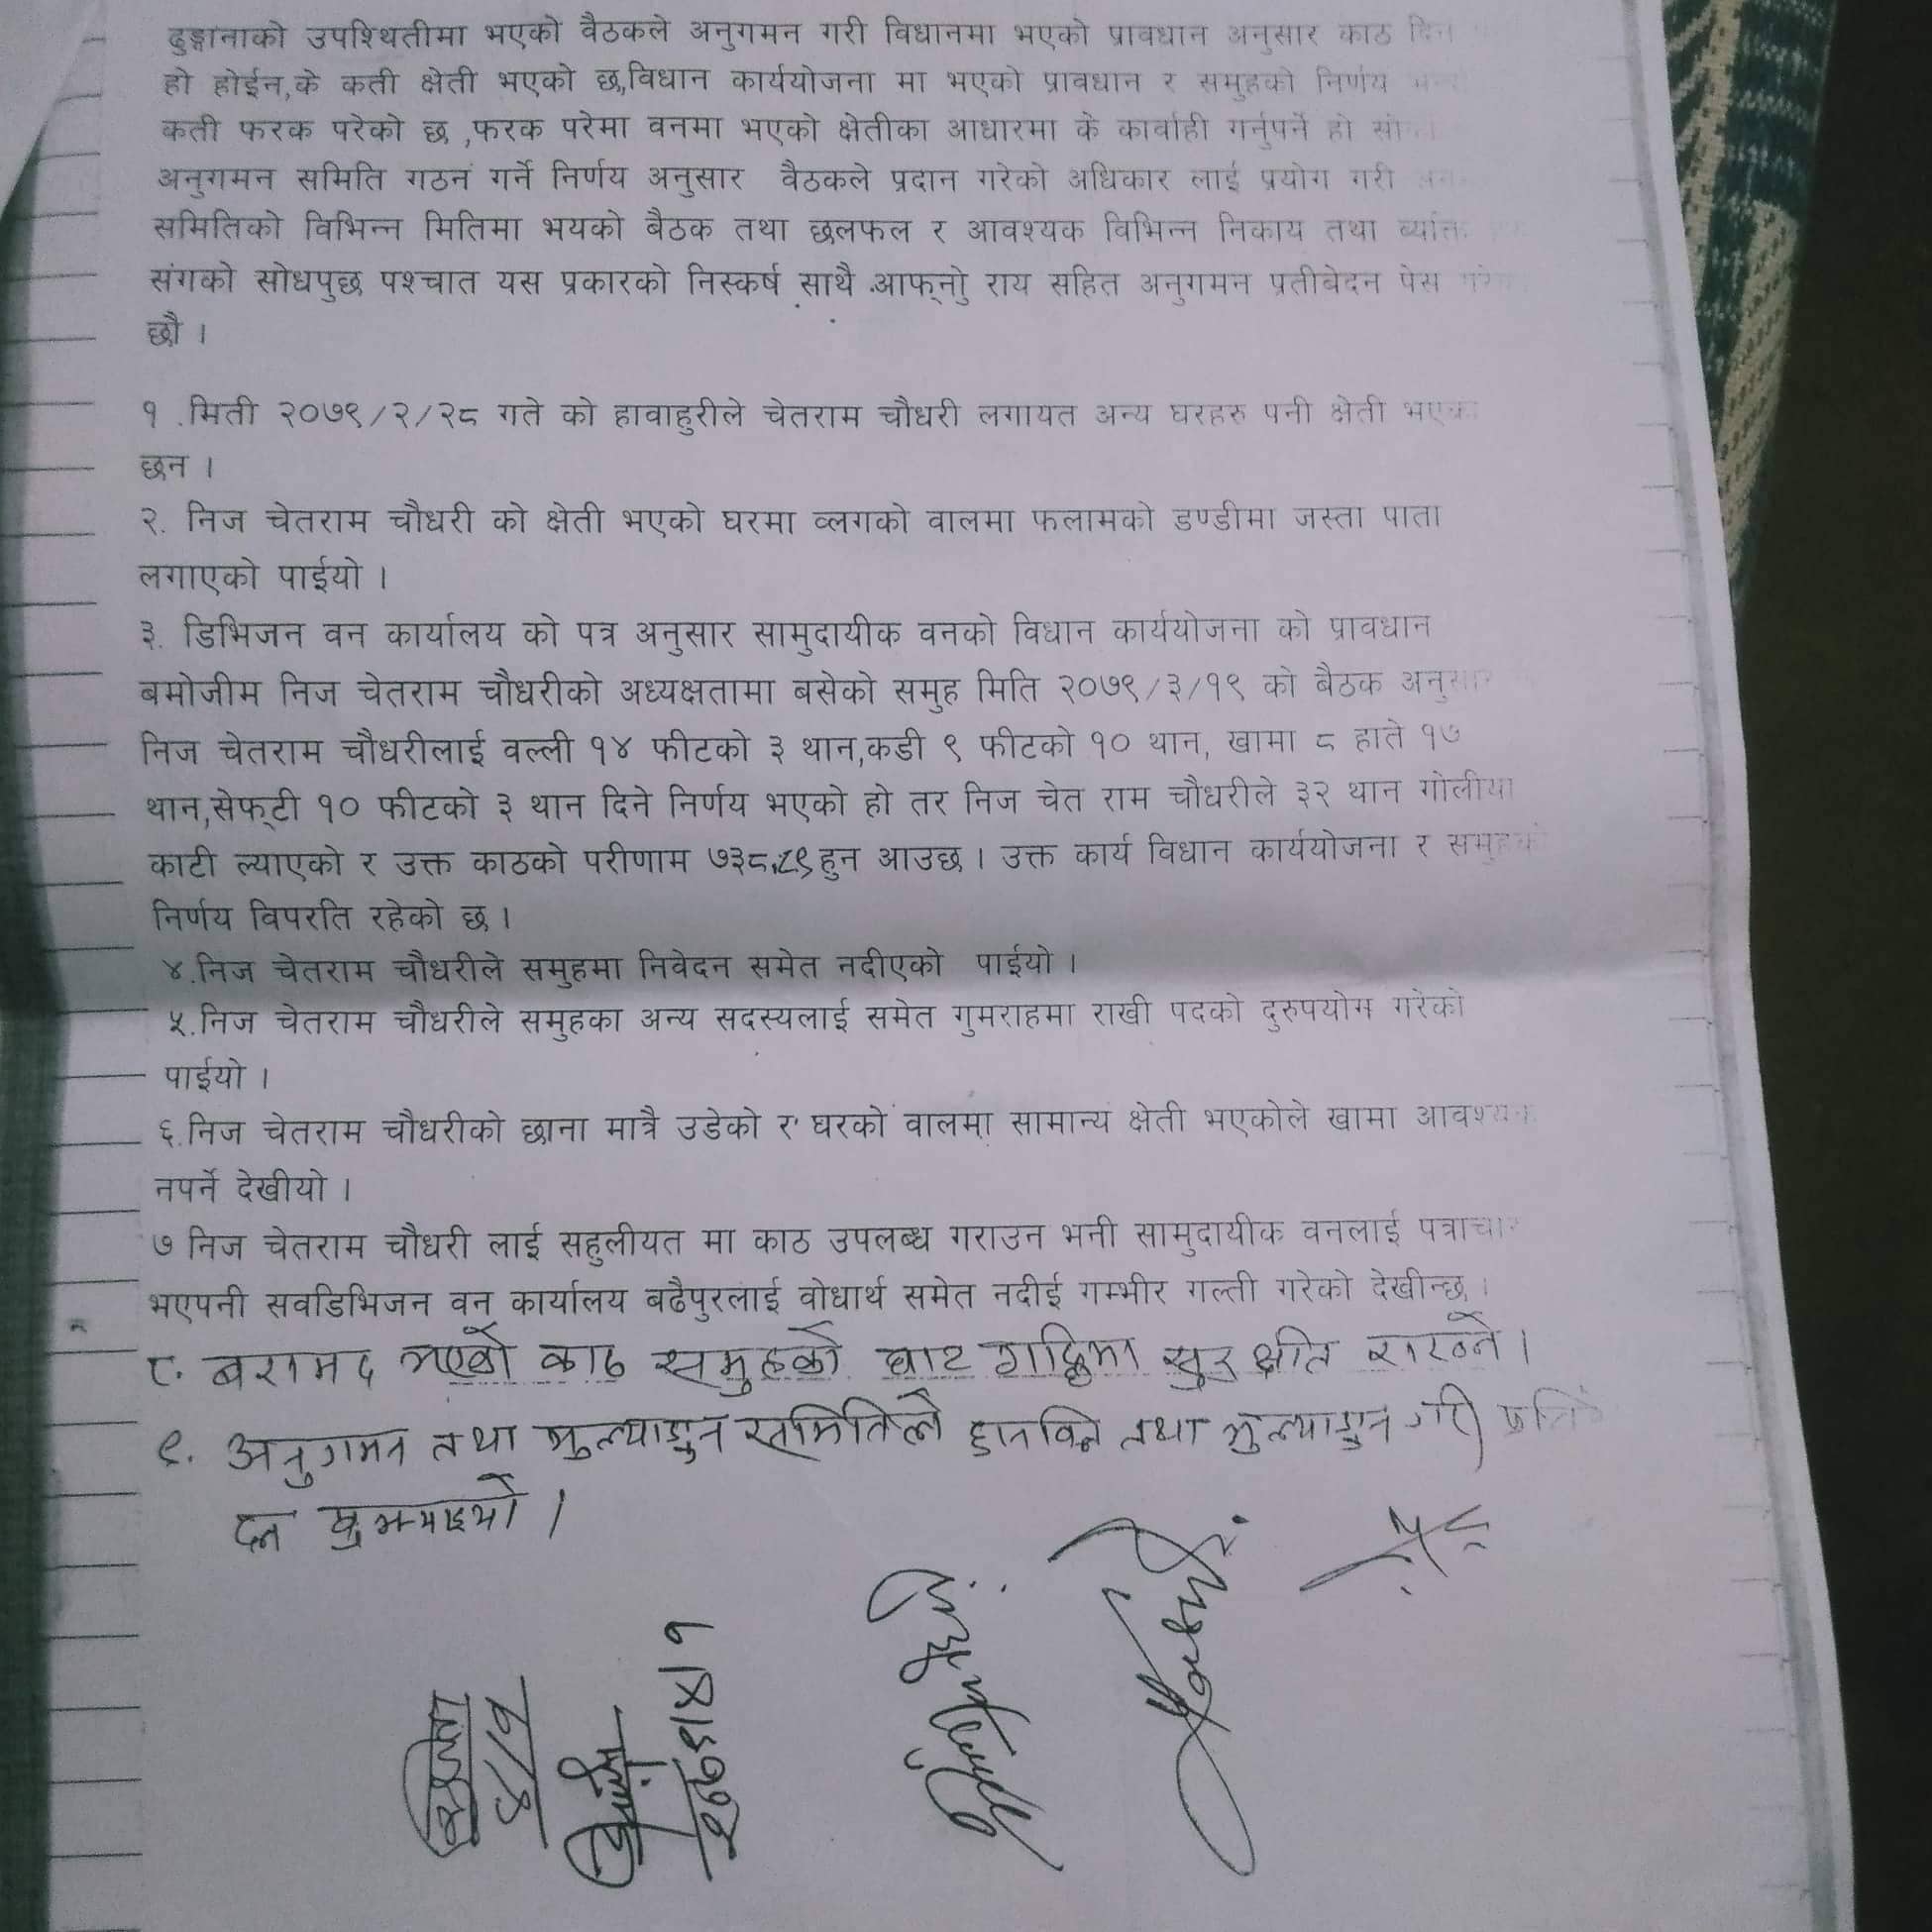 ढुङ्गानाको उपश्थितीमा भएको वैठकले अनुगमन गरी विधानमा भएको प्रावधान अनुसार काठ दिन
हो होईन,के कती क्षेती भएको छ,विधान कार्ययोजना मा भएको प्रावधान र समुहको निर्णय
कती फरक परेको छ ,फरक परेमा वनमा भएको क्षेतीका आधारमा के कार्वाही गर्नुपर्ने हो
अनुगमन समिति गठन गर्ने निर्णय अनुसार वैठकले प्रदान गरेको अधिकार लाई प्रयोग गरी
समितिको विभिन्न मितिमा भयको बैठक तथा छलफल र आवश्यक विभिन्न निकाय तथा
संगको सोधपुछ पश्चात यस प्रकारको निस्कर्ष साथै आफ्नो राय सहित अनुगमन प्रतीबेदन पेस
छौ ।
१ .मिती २०७९/२/२८ गते को हावाहुरीले चेतराम चौधरी लगायत अन्य घरहरु पनी क्षेती भएका
छन ।
२. निज चेतराम चौधरी को क्षेती भएको घरमा व्लगको वालमा फलामको डण्डीमा जस्ता पाता
लगाएको पाईयो ।
३. डिभिजन वन कार्यालय को पत्र अनुसार सामुदायीक वनको विधान कार्ययोजना को प्रावधान
बमोजीम निज चेतराम चौधरीको अध्यक्षतामा बसेको समुह मिति २०७९/३/१९ को बैठक अनुसार
निज चेतराम चौधरीलाई वल्ली १४ फीटको ३ थान,कडी ९ फीटको १० थान, खामा ८ हाते १७
थान,सेफ्टी १० फीटको ३ थान दिने निर्णय भएको हो तर निज चेत राम चौधरीले ३२ थान गोलीया
काटी ल्याएको र उक्त काठको परीणाम ७३८.८९ हुन आउछ । उक्त कार्य विधान कार्ययोजना र समुहको
निर्णय विपरति रहेको छ ।
४.निज चेतराम चौधरीले समुहमा निवेदन समेत नदीएको पाईयो ।
५.निज चेतराम चौधरीले समुहका अन्य सदस्यलाई समेत गुमराहमा राखी पदको दुरुपयोग गरेको
पाईयो ।
६.निज चेतराम चौधरीको छाना मात्रै उडेको र घरको वालमा सामान्य क्षेती भएकोले खामा आवश्यक
नपर्ने देखीयो ।
७ निज चेतराम चौधरी लाई सहुलीयत मा काठ उपलब्ध गराउन भनी सामुदायीक वनलाई पत्राचार
भएपनी सवडिभिजन वन कार्यालय बढैपुरलाई वोधार्थ समेत नदीई गम्भीर गल्ती गरेको देखीन्छ ।
८. बरामद भएको काठ समुहको घाट गाद्दिमा सुरक्षीत राख्ने ।
९. अनुगमन तथा मुल्याङ्कन समितिले तथा मुल्याङ्कन गरी
४/१
२०७९/४/१